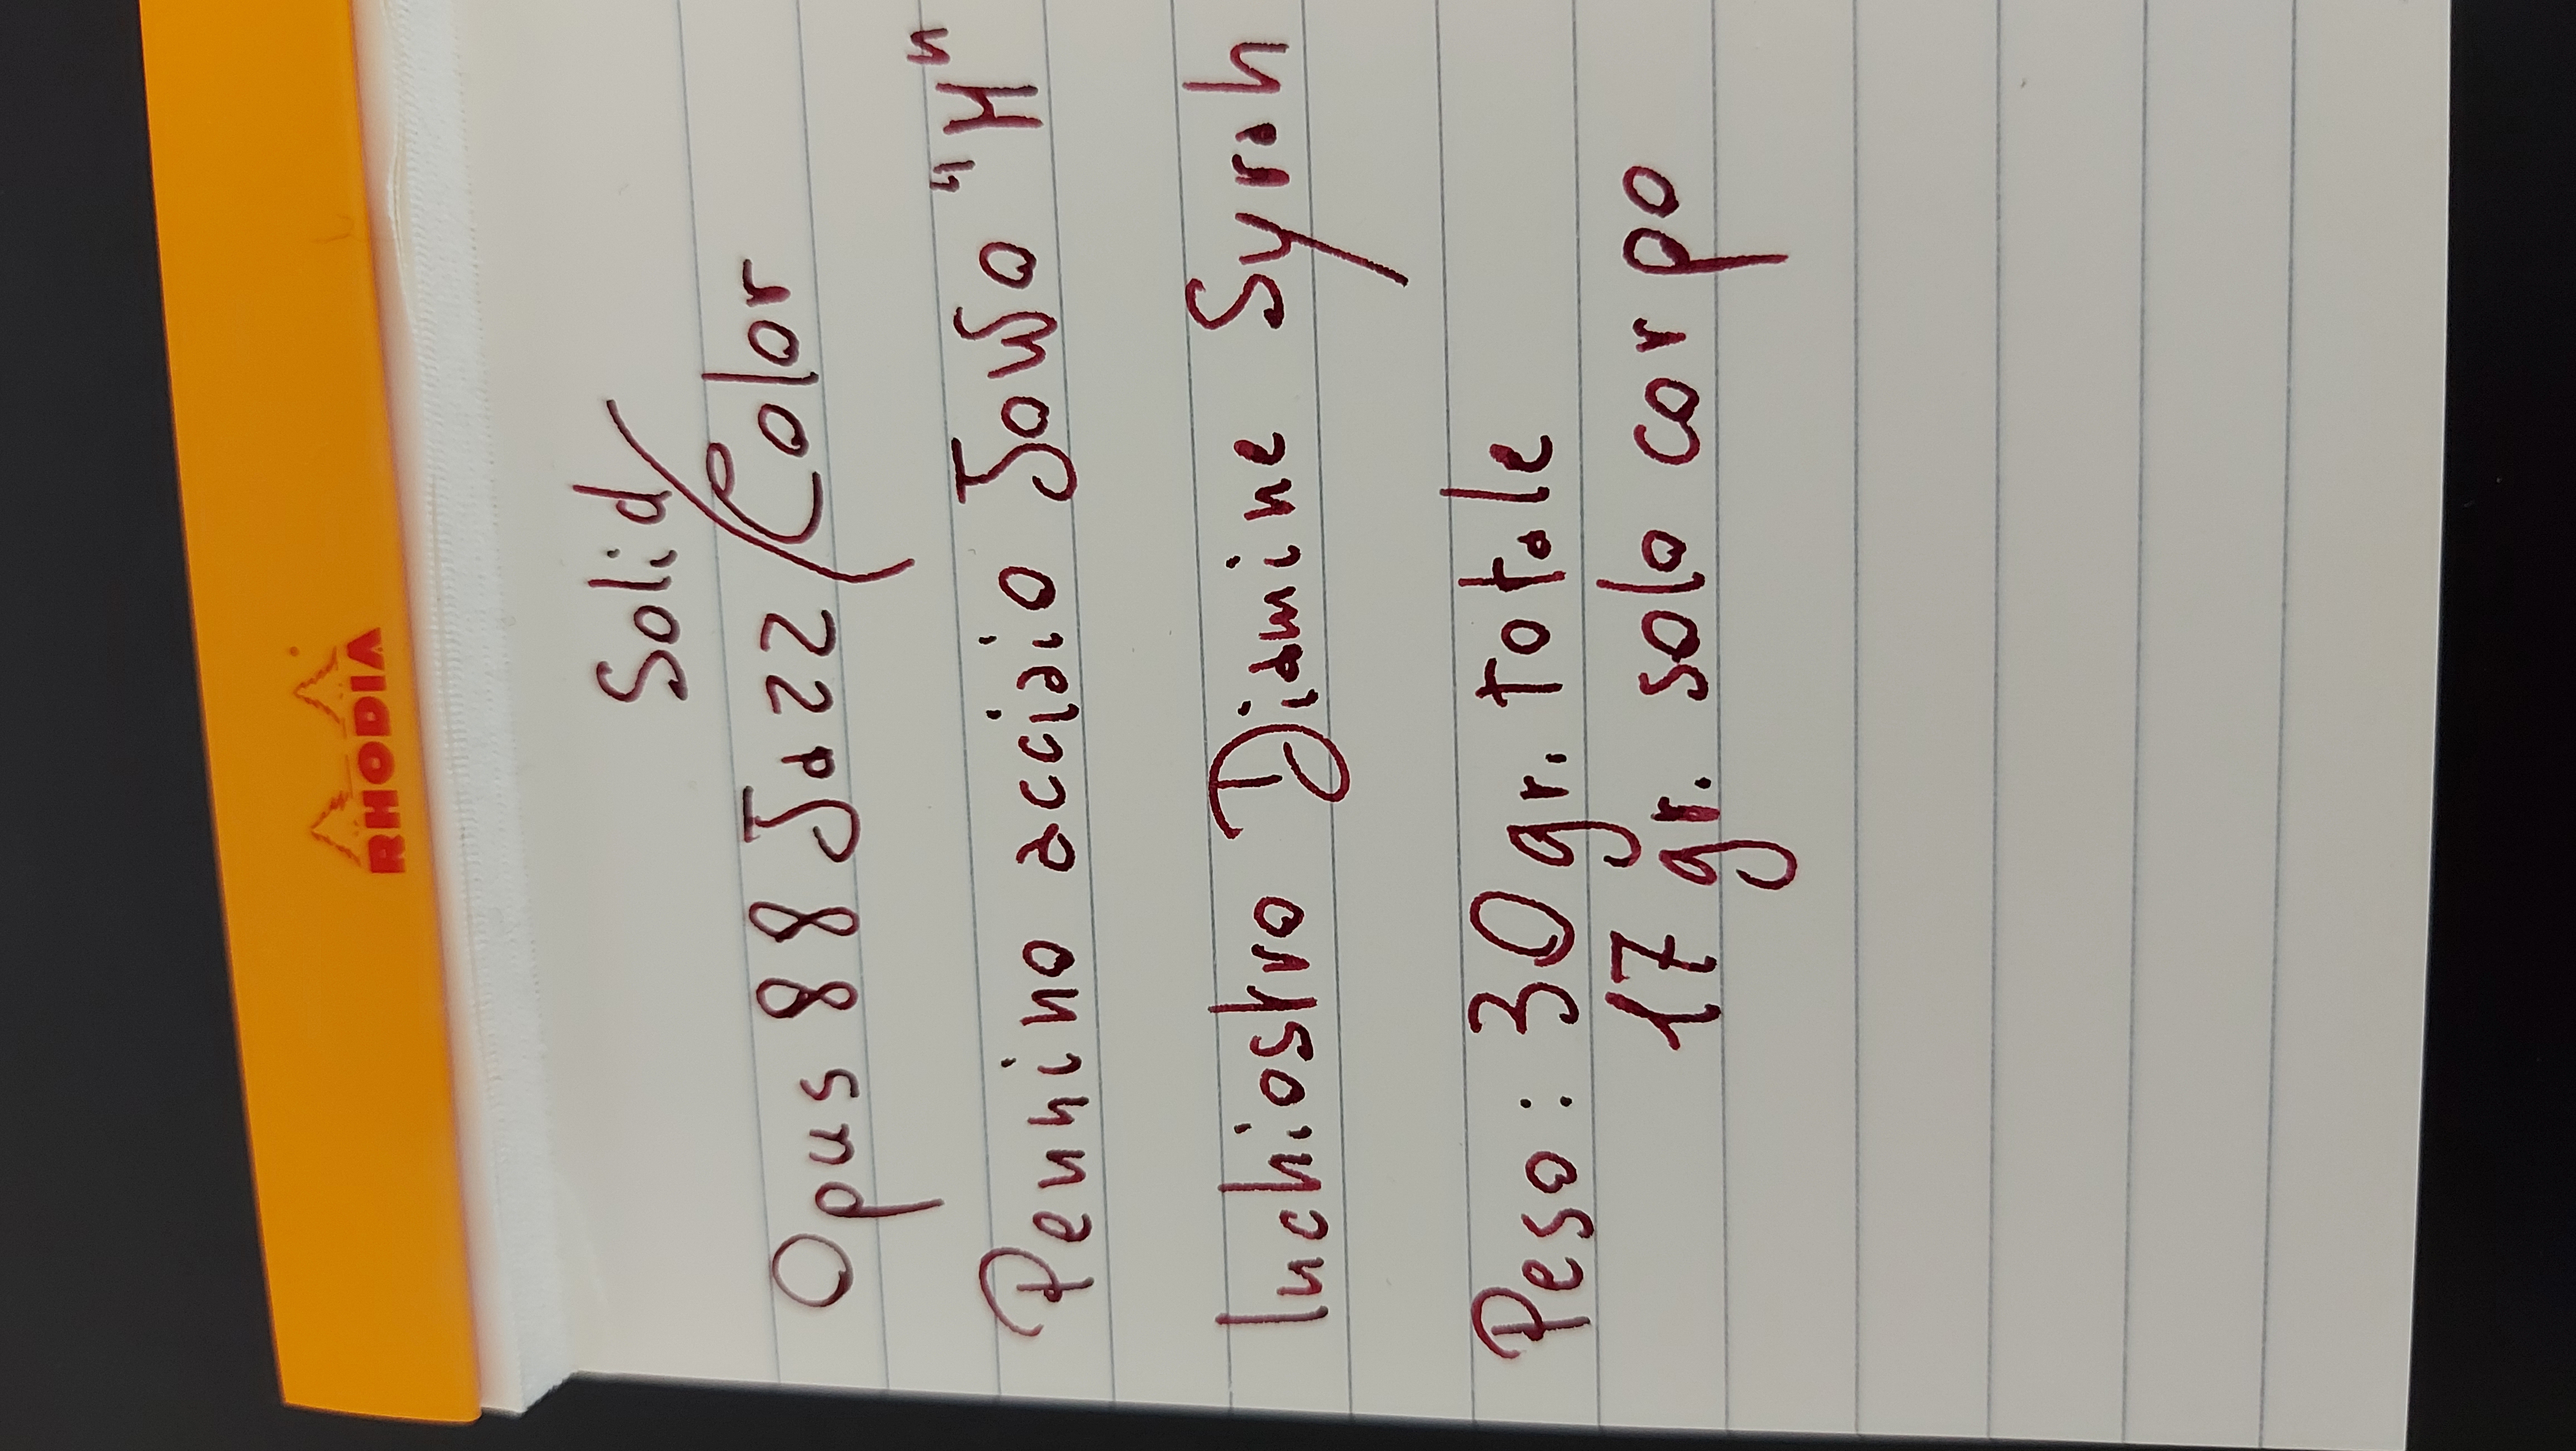 RHODIA
Solid
Opus 88 Jazz / Color
Pennino acciaio JoWo "M"
Inchiostro Diamine Syrah
Peso: 30 gr. totale
17 gr. solo corpo